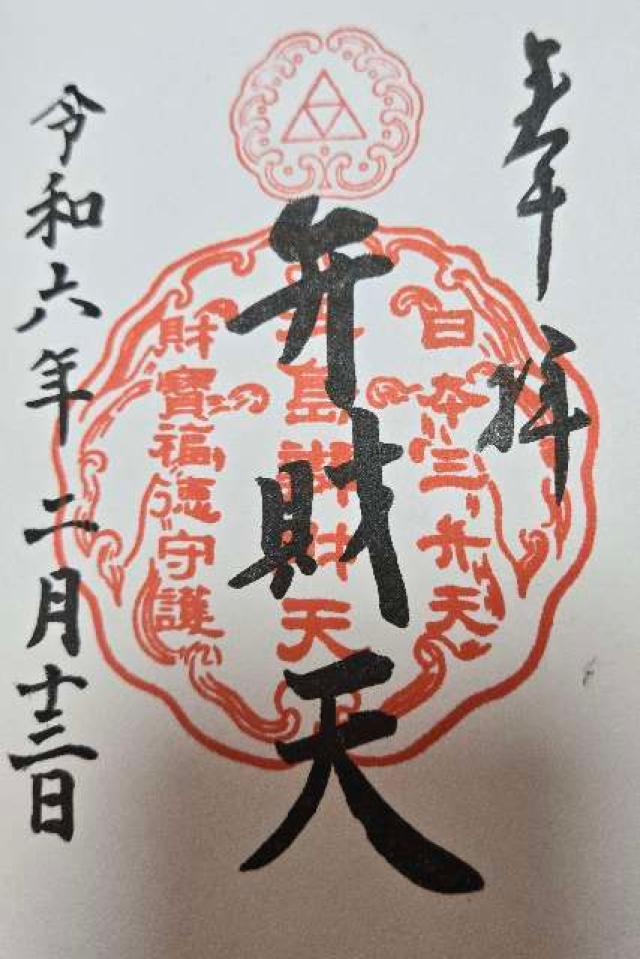 奉拝
日本三弁天
弁財天
財寶福徳守護
令和六年二月十三日